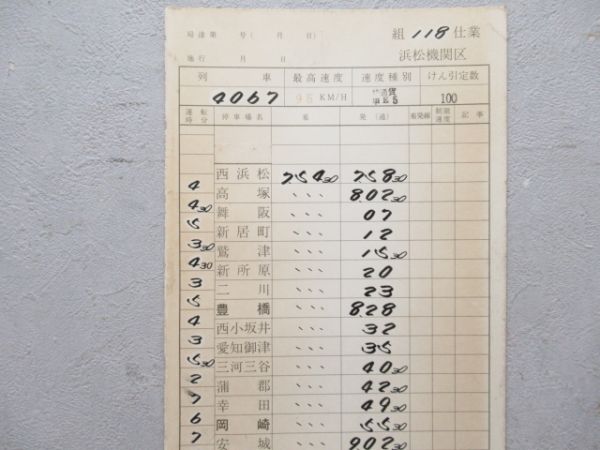 局達第 号( 月 日) 組 118 仕業
施行 月 日 浜松機関区
列 車 最高速度 速度種別 けん引定数
4067 95 KM/H 100
運転時分 停車場名 着 発(通) 着発線 制限速度 記事
西浜松 7 54 30 7 58 30
4
高塚 、、、 8.02 30
4 30
舞阪 、、、 07
5
新居町 、、、 12
3 30
鷲津 、、、 15 30
4 30
新所原 、、、 20
3
二川 、、、 23
5
豊橋 、、、 8.28
4
西小坂井 、、、 32
3
愛知御津 、、、 35
5 30
三河三谷 、、、 40 30
2
蒲郡 、、、 42 30
7
幸田 、、、 49 30
6
岡崎 、、、 55 30
7
安城 、、、 9.02 30